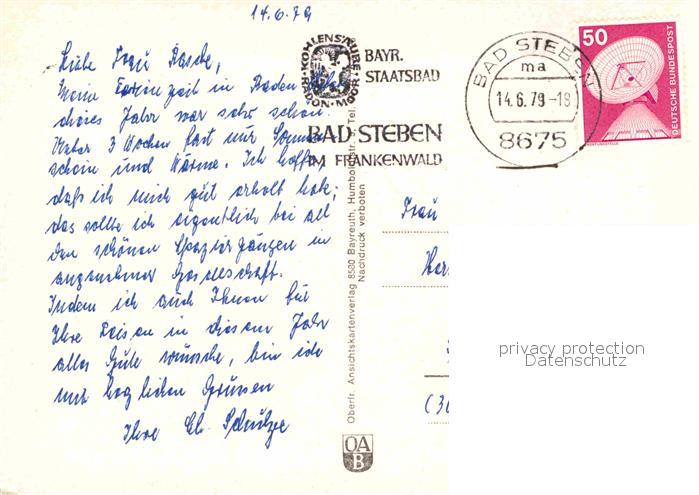 14.6.79
Liebe Frau
Meine Ferienzeit in Baden
dieses Jahr war sehr schön.
Ueber 3 Wochen fast nur Sonnen-
schein und Wärme. Ich hoffe,
daß ich mich gut erholt habe;
das sollte ich eigentlich bei all
den schönen Spaziergängen in
angenehmer Gesellschaft.
Indem ich auch Ihnen für
Ihre Reisen in diesem Jahr
alles Gute wünsche, bin ich
mit herzlichen Grüssen
Ihre Ch. Schulze
KOHLENSÄURE
RADON-MOOR
BAYR.
STAATSBAD
BAD STEBEN
IM FRANKENWALD
BAD STEBEN
ma
14.6.79-18
8675
50
DEUTSCHE BUNDESPOST
Oberfr. Ansichtskartenverlag 8580 Bayreuth, Humboldtstr. Tel.
Nachdruck verboten
OA
B
Frau
privacy protection
Datenschutz